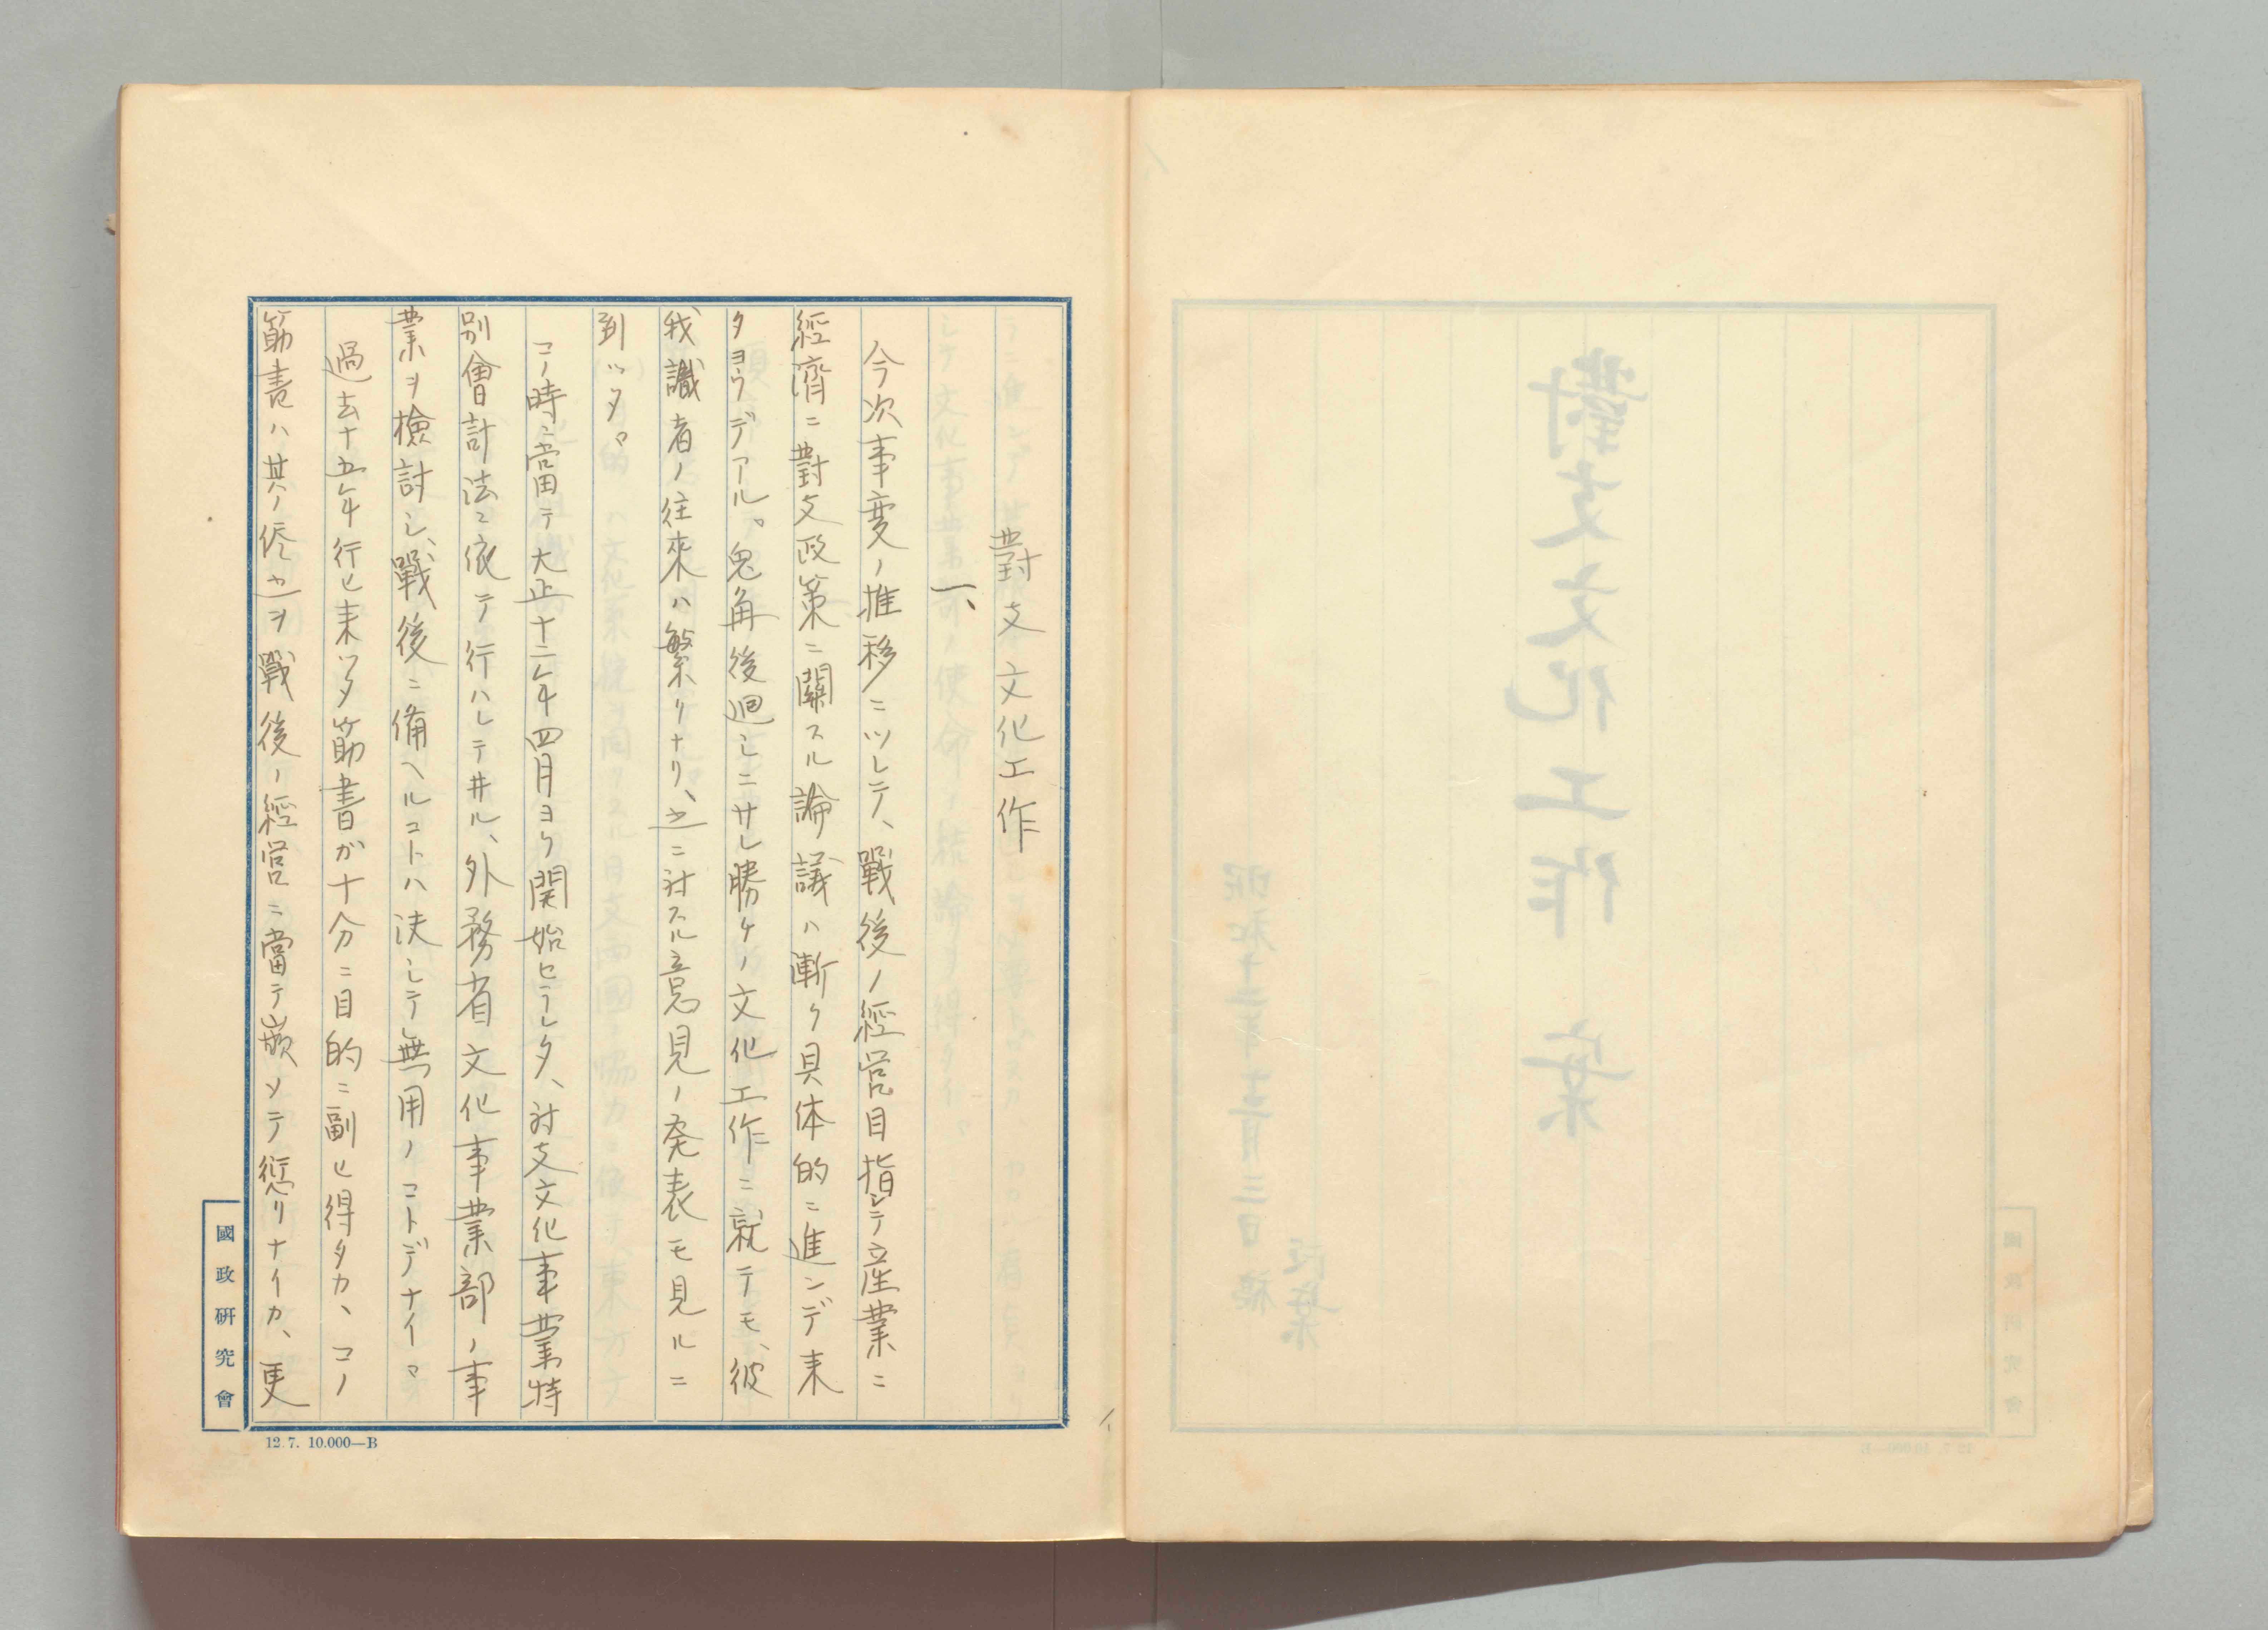 對支文化工作
一、
今次事変ノ推移ニツレテ、戰後ノ經営目指シテ産業ニ
經濟ニ對支政策ニ關スル論議ハ漸ク具体的ニ進ンデ来
タヨウデアル。兎角後廻シニサレ勝ケノ文化工作ニ就テモ、彼
我識者ノ往來ハ繁クナリ、之ニ対スル意見ノ発表モ見ルニ
到ツタ。
コノ時ニ當テ大正十二年四月ヨリ開始セラレタ、対支文化事業特
別會計法ニ依テ行ハレテ井ル、外務省文化事業部ノ事
業ヲ檢討シ、戰後ニ備ヘルコトハ決シテ無用ノコトデナイ。
過去十五年行ヒ来ツタ筋書ガ十分ニ目的ニ副ヒ得タカ、コノ
筋書ハ其ノ侭之ヲ戰後ノ經営ニ當テ嵌ソテ愆リナイカ、更
國政研究會
12.7. 10.000—B